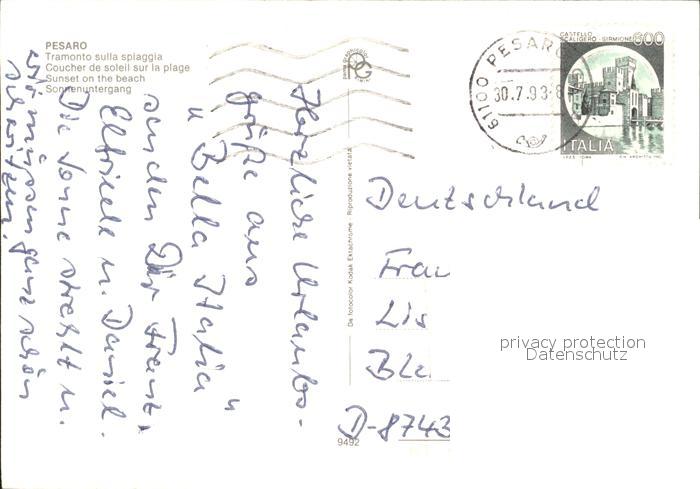 PESARO
Tramonto sulla spiaggia
Coucher de soleil sur la plage
Sunset on the beach
Sonnenuntergang
Herzliche Urlaubs-
grüße aus
"Bella Italia"
senden Dir Franz,
Elfriede u. Daniel.
Die Sonne strahlt u.
wir müssen ganz schön
schwitzen.
Da fotocolor Kodak Ektachrome - Riproduzione vietata
9492
61100 PESARO
30.7.93-8
CASTELLO
SCALIGERO - SIRMIONE
600
ITALIA
Deutschland
Frau
Lis
D-8743
privacy protection
Datenschutz